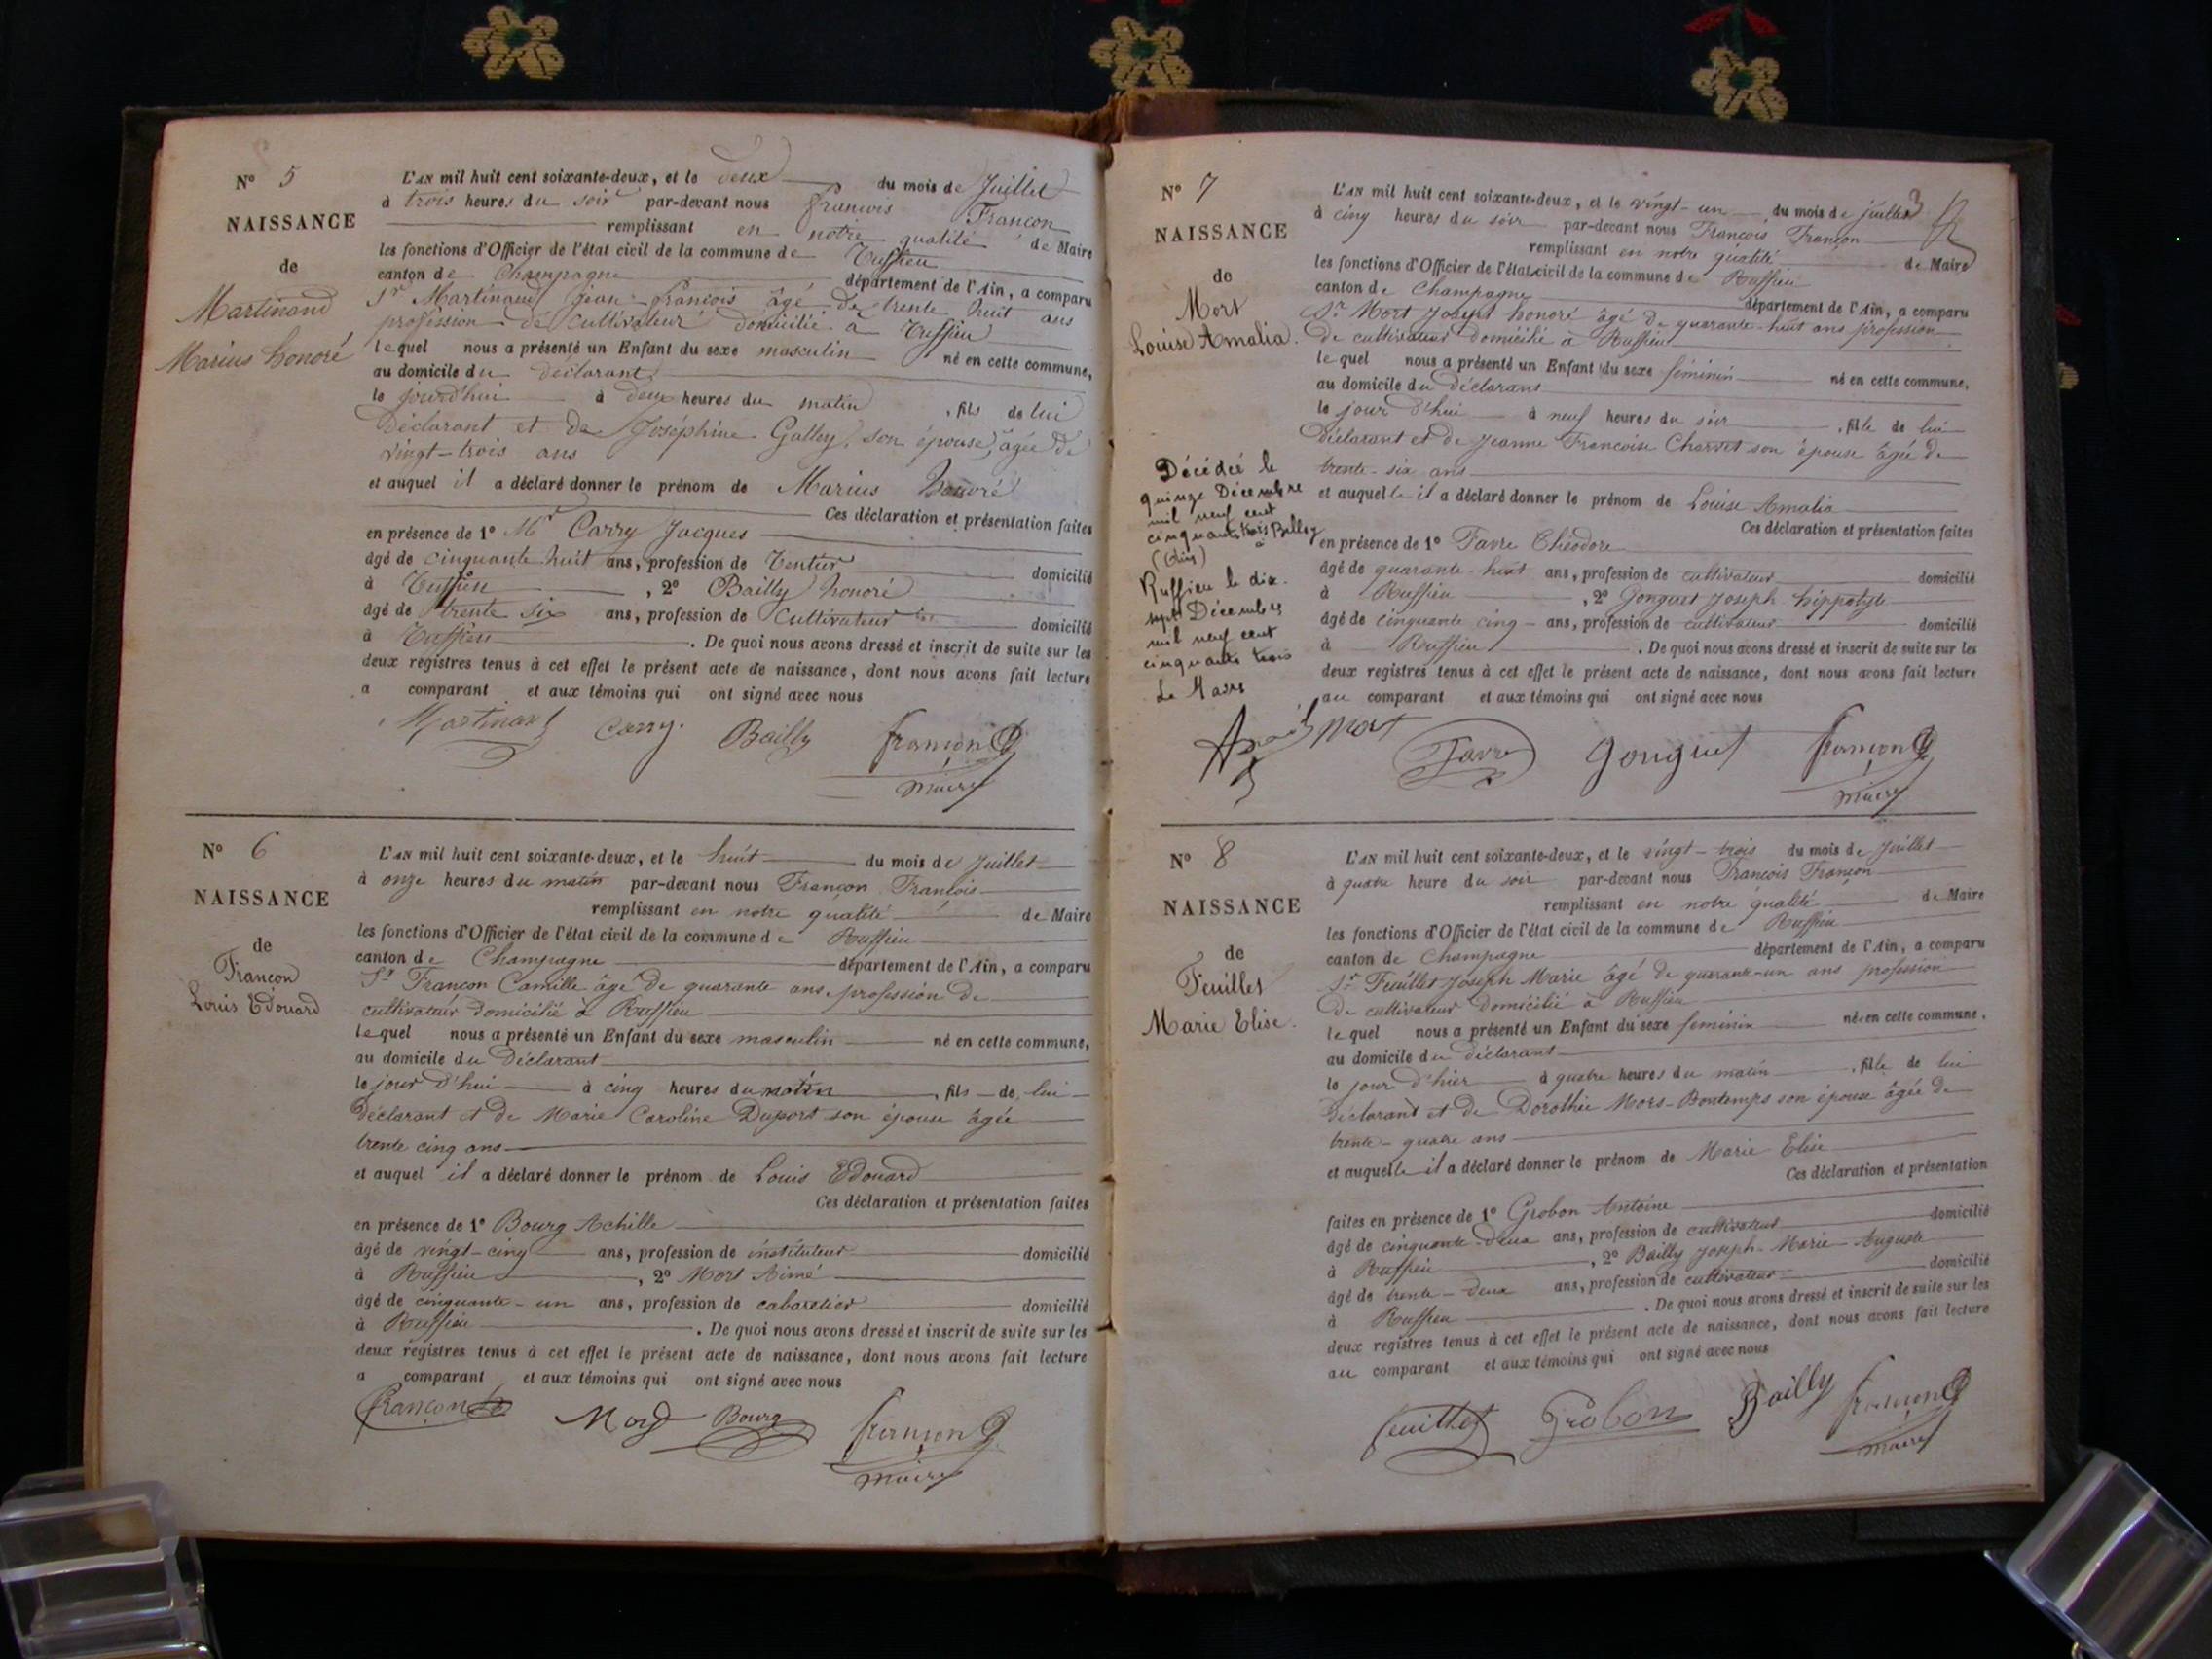 N° 5
NAISSANCE
de
Martinand
Marius honoré
L'AN mil huit cent soixante-deux, et le deux du mois de Juillet
à trois heures du soir par-devant nous françois Françon
remplissant en notre qualité de Maire
les fonctions d'Officier de l'état civil de la commune de Ruffieu
canton de Champagne département de l'Ain, a comparu
Sr Martinand jean-françois âgé de trente huit ans
profession de cultivateur domicilié à Ruffieu
lequel nous a présenté un Enfant du sexe masculin né en cette commune,
au domicile du déclarant
le jourd'hui à deux heures du matin, fils de lui
déclarant et de Joséphine Gallay son épouse, âgée de
vingt-trois ans
et auquel il a déclaré donner le prénom de Marius honoré
Ces déclaration et présentation faites
en présence de 1° Mr Carry Jacques
âgé de cinquante huit ans, profession de Rentier domicilié
à Ruffieu, 2° Bailly honoré
âgé de trente six ans, profession de Cultivateur domicilié
à Ruffieu. De quoi nous avons dressé et inscrit de suite sur les
deux registres tenus à cet effet le présent acte de naissance, dont nous avons fait lecture
a comparant et aux témoins qui ont signé avec nous
Martinand Carry Bailly françon
maire
N° 6
NAISSANCE
de
Françon
Louis Edouard
L'AN mil huit cent soixante-deux, et le huit du mois de Juillet
à onze heures du matin par-devant nous Françon François
remplissant en notre qualité de Maire
les fonctions d'Officier de l'état civil de la commune de Ruffieu
canton de Champagne département de l'Ain, a comparu
Sr Françon Camille âgé de quarante ans, profession de
cultivateur domicilié à Ruffieu
lequel nous a présenté un Enfant du sexe masculin né en cette commune,
au domicile du Déclarant
le jour d'hui à cinq heures du matin, fils de lui
déclarant et de Marie Caroline Duport son épouse âgée
trente cinq ans
et auquel il a déclaré donner le prénom de Louis Edouard
Ces déclaration et présentation faites
en présence de 1° Bourg Achille
âgé de vingt-cinq ans, profession de instituteur domicilié
à Ruffieu, 2° Mort Aimé
âgé de cinquante-un ans, profession de cabaretier domicilié
à Ruffieu. De quoi nous avons dressé et inscrit de suite sur les
deux registres tenus à cet effet le présent acte de naissance, dont nous avons fait lecture
a comparant et aux témoins qui ont signé avec nous
françon Mort Bourg françon
maire
3
N° 7
NAISSANCE
de
Mort
Louise Amalia.
Décédée le
quinze Décembre
mil neuf cent
cinquante trois à Belley
(Ain)
Ruffieu le dix-
sept Décembre
mil neuf cent
cinquante trois
Le Maire
L'AN mil huit cent soixante-deux, et le vingt-un du mois de juillet
à cinq heures du soir par-devant nous François Françon
remplissant en notre qualité de Maire
les fonctions d'Officier de l'état civil de la commune de Ruffieu
canton de Champagne département de l'Ain, a comparu
Sr Mort Joseph honoré âgé de quarante-huit ans profession
de cultivateur domicilié à Ruffieu
lequel nous a présenté un Enfant du sexe féminin né en cette commune,
au domicile du déclarant
le jour d'hui à neuf heures du soir, fille de lui
déclarant et de Jeanne Françoise Charvet son épouse âgée de
trente-six ans
et auquelle il a déclaré donner le prénom de Louise Amalia
Ces déclaration et présentation faites
en présence de 1° Favre Théodore
âgé de quarante-huit ans, profession de cultivateur domicilié
à Ruffieu, 2° Gonguet Joseph hippolyte
âgé de cinquante cinq ans, profession de cultivateur domicilié
à Ruffieu. De quoi nous avons dressé et inscrit de suite sur les
deux registres tenus à cet effet le présent acte de naissance, dont nous avons fait lecture
au comparant et aux témoins qui ont signé avec nous
mort Favre Gonguet françon
maire
N° 8
NAISSANCE
de
Feuillet
Marie Elise.
L'AN mil huit cent soixante-deux, et le vingt-trois du mois de Juillet
à quatre heure du soir par-devant nous François Françon
remplissant en notre qualité de Maire
les fonctions d'Officier de l'état civil de la commune de Ruffieu
canton de Champagne département de l'Ain, a comparu
Sr Feuillet Joseph Marie âgé de quarante-un ans profession
de cultivateur domicilié à Ruffieu
lequel nous a présenté un Enfant du sexe féminin né en cette commune,
au domicile du déclarant
le jour d'hier à quatre heures du matin, fille de lui
déclarant et de Dorothée Mors-Bontemps son épouse âgée de
trente-quatre ans
et auquelle il a déclaré donner le prénom de Marie Elise
Ces déclaration et présentation
faites en présence de 1° Grobon Antoine
âgé de cinquante-deux ans, profession de cultivateur domicilié
à Ruffieu, 2° Bailly Joseph-Marie-Auguste
âgé de trente-deux ans, profession de cultivateur domicilié
à Ruffieu. De quoi nous avons dressé et inscrit de suite sur les
deux registres tenus à cet effet le présent acte de naissance, dont nous avons fait lecture
au comparant et aux témoins qui ont signé avec nous
feuillet Grobon Bailly françon
maire